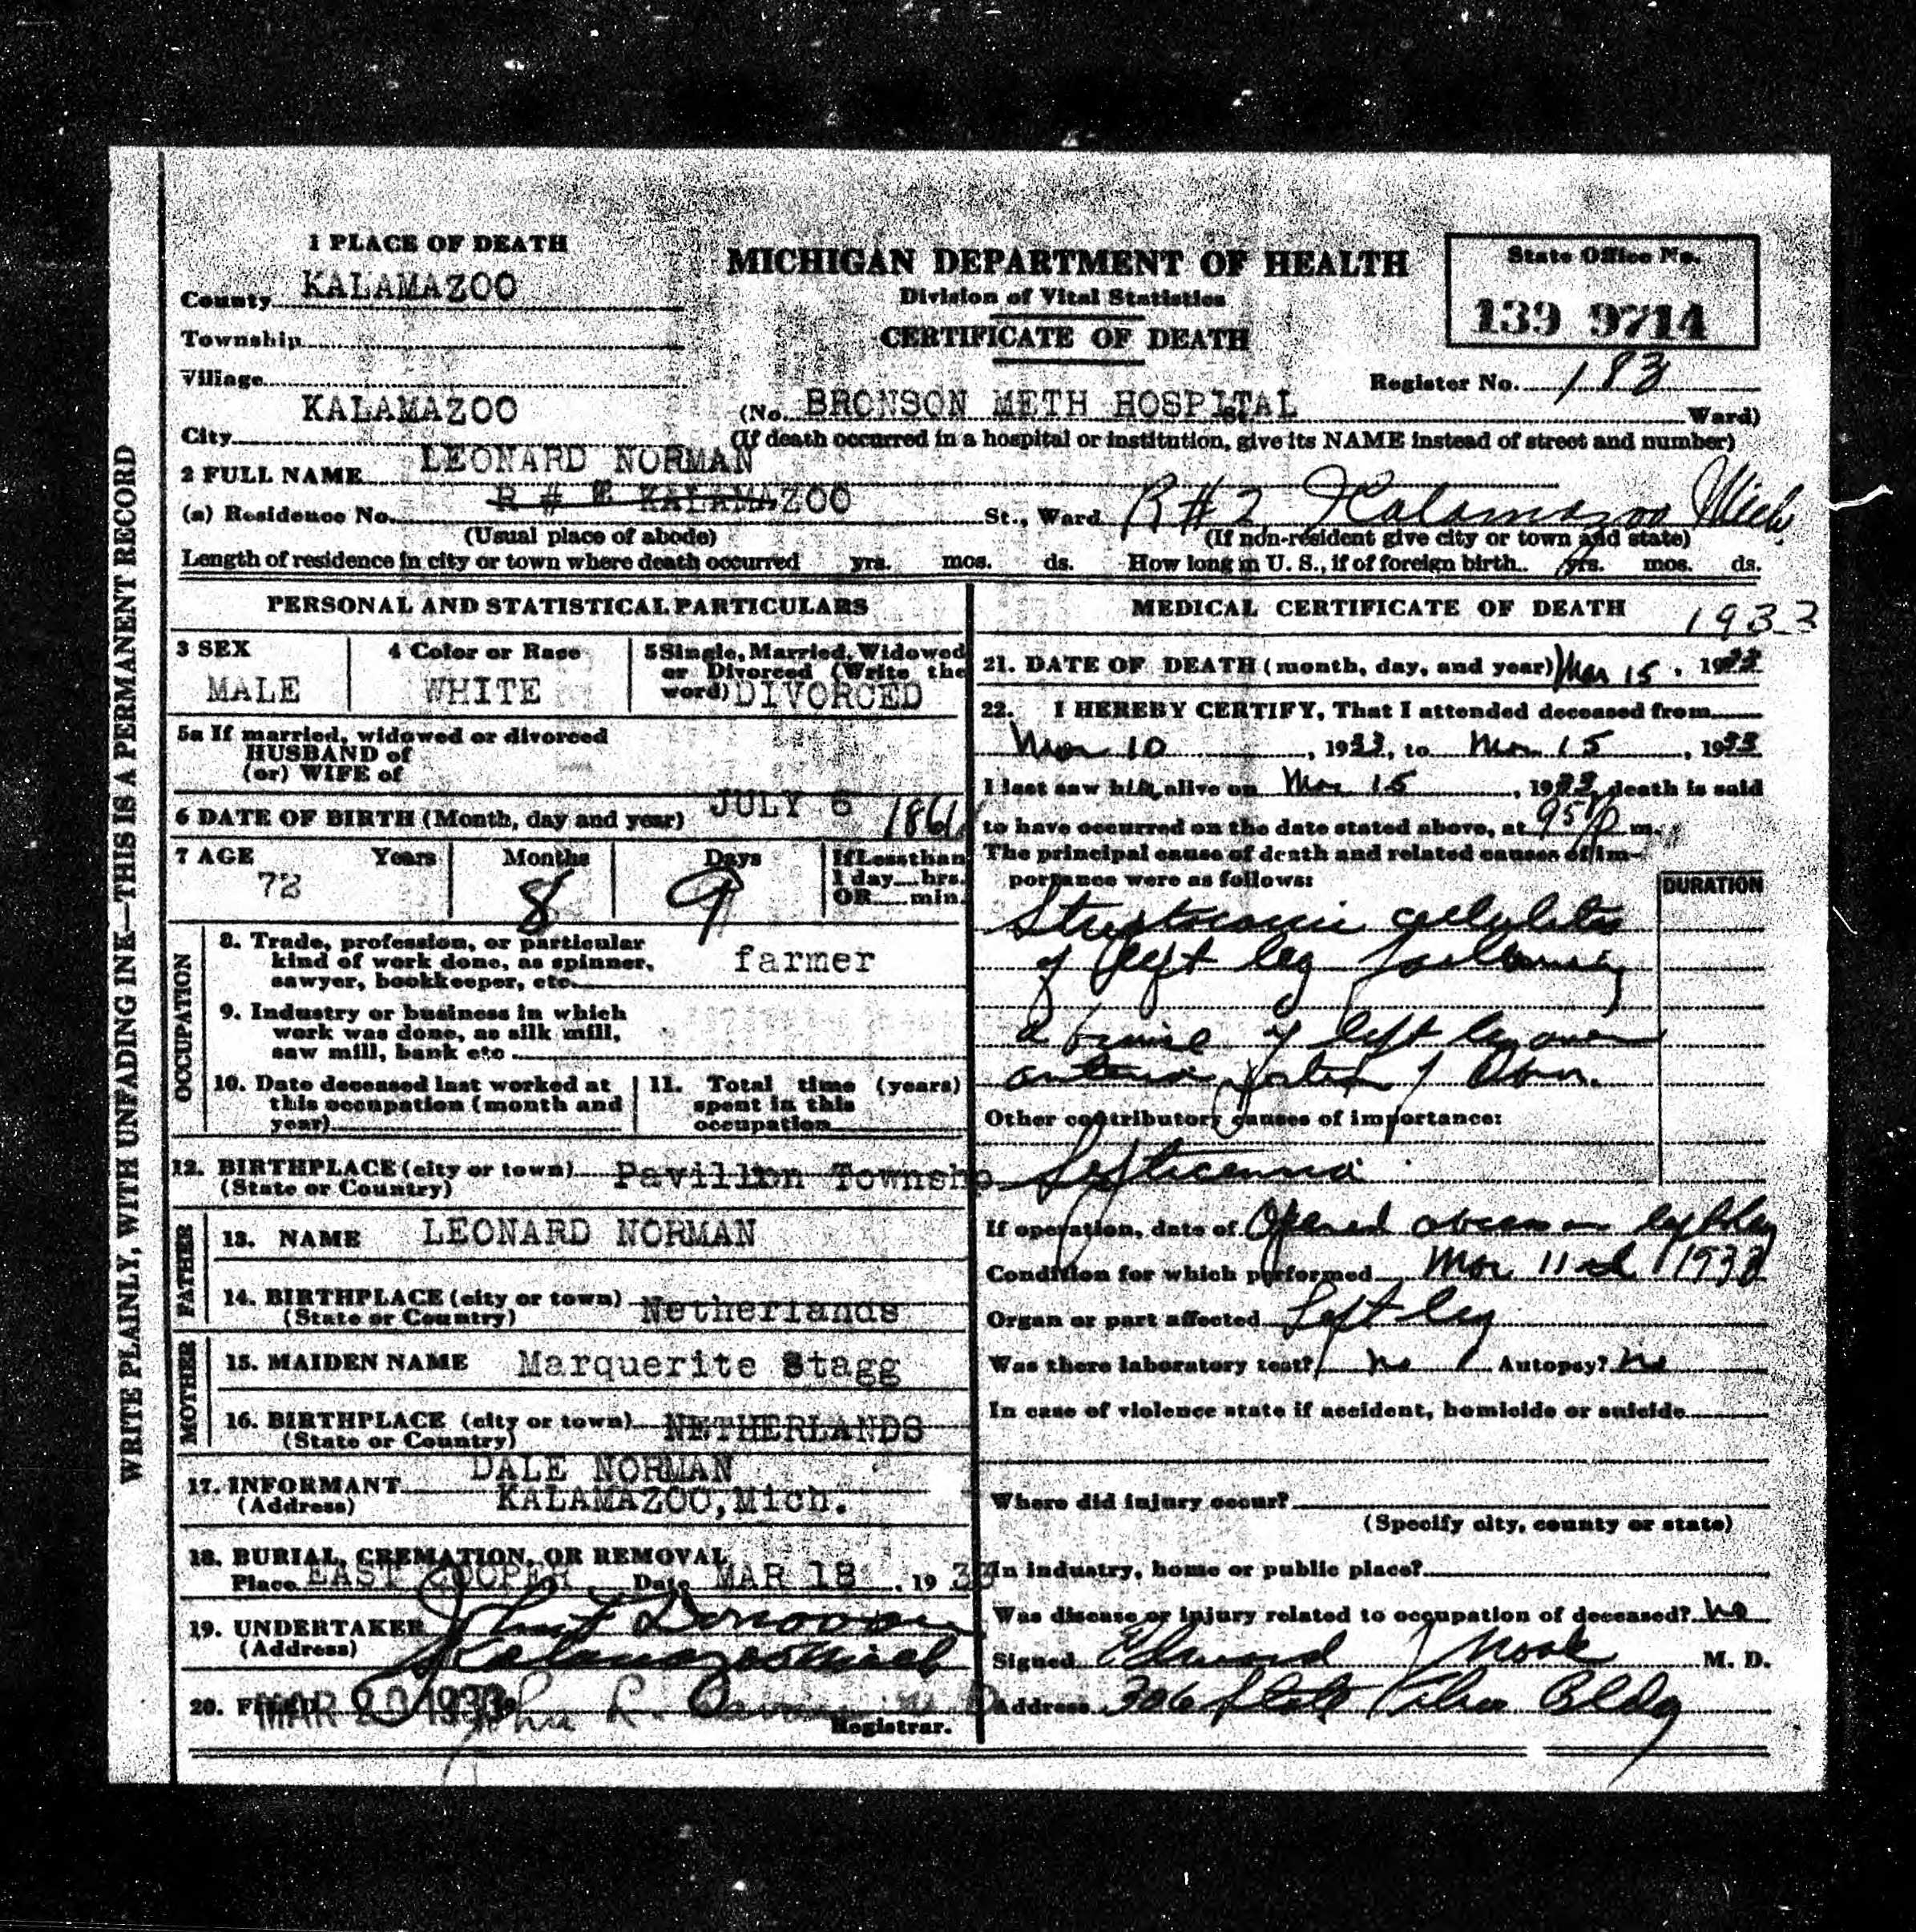 1 PLACE OF DEATH
County KALAMAZOO
Township
Village
City KALAMAZOO
MICHIGAN DEPARTMENT OF HEALTH
Division of Vital Statistics
CERTIFICATE OF DEATH
State Office No.
139 9714
Register No. 183
(No. BRONSON METH HOSPITAL St. Ward)
(If death occurred in a hospital or institution, give its NAME instead of street and number)
2 FULL NAME LEONARD NORMAN
(a) Residence No. R # KALAMAZOO St., Ward R#2 Kalamazoo Mich.
(Usual place of abode) (If non-resident give city or town and state)
Length of residence in city or town where death occurred yrs. mos. ds. How long in U. S., if of foreign birth.. yrs. mos. ds.
WRITE PLAINLY, WITH UNFADING INK—THIS IS A PERMANENT RECORD
PERSONAL AND STATISTICAL PARTICULARS
3 SEX
MALE
4 Color or Race
WHITE
5 Single, Married, Widowed
or Divorced (Write the
word) DIVORCED
5a If married, widowed or divorced
HUSBAND of
(or) WIFE of
6 DATE OF BIRTH (Month, day and year) JULY 6 1861
7 AGE Years Months Days If Less than
72 8 9 1 day....hrs.
OR.....min.
OCCUPATION
8. Trade, profession, or particular
kind of work done, as spinner, farmer
sawyer, bookkeeper, etc.
9. Industry or business in which
work was done, as silk mill,
saw mill, bank etc
10. Date deceased last worked at
this occupation (month and
year)
11. Total time (years)
spent in this
occupation
12. BIRTHPLACE (city or town) Pavillion Townshp
(State or Country)
FATHER
13. NAME LEONARD NORMAN
14. BIRTHPLACE (city or town) Netherlands
(State or Country)
MOTHER
15. MAIDEN NAME Marquerite Stagg
16. BIRTHPLACE (city or town) NETHERLANDS
(State or Country)
17. INFORMANT DALE NORMAN
(Address) KALAMAZOO, Mich.
18. BURIAL, CREMATION, OR REMOVAL
Place EAST COOPER Date MAR 18, 1933
19. UNDERTAKER John Donovan
(Address) Kalamazoo Mich
20. FILED MAR 20 1933 John R.
Registrar.
MEDICAL CERTIFICATE OF DEATH 1933
21. DATE OF DEATH (month, day, and year) Mar 15, 1933
22. I HEREBY CERTIFY, That I attended deceased from
Mar 10, 1933, to Mar 15, 1933
I last saw him alive on Mar 15, 1933, death is said
to have occurred on the date stated above, at 95 p m.
The principal cause of death and related causes of im-
portance were as follows:
DURATION
cellulitis
of left leg following
a bruise of left leg over
anterior portion of
Other contributory causes of importance:
Septicemia
If operation, date of Opened abscess on leg
Condition for which performed Mar 11 1933
Organ or part affected Left leg
Was there laboratory test? no Autopsy? no
In case of violence state if accident, homicide or suicide
Where did injury occur?
(Specify city, county or state)
In industry, home or public place?
Was disease or injury related to occupation of deceased? no
Signed Edward M. D.
Address 306 State Bldg